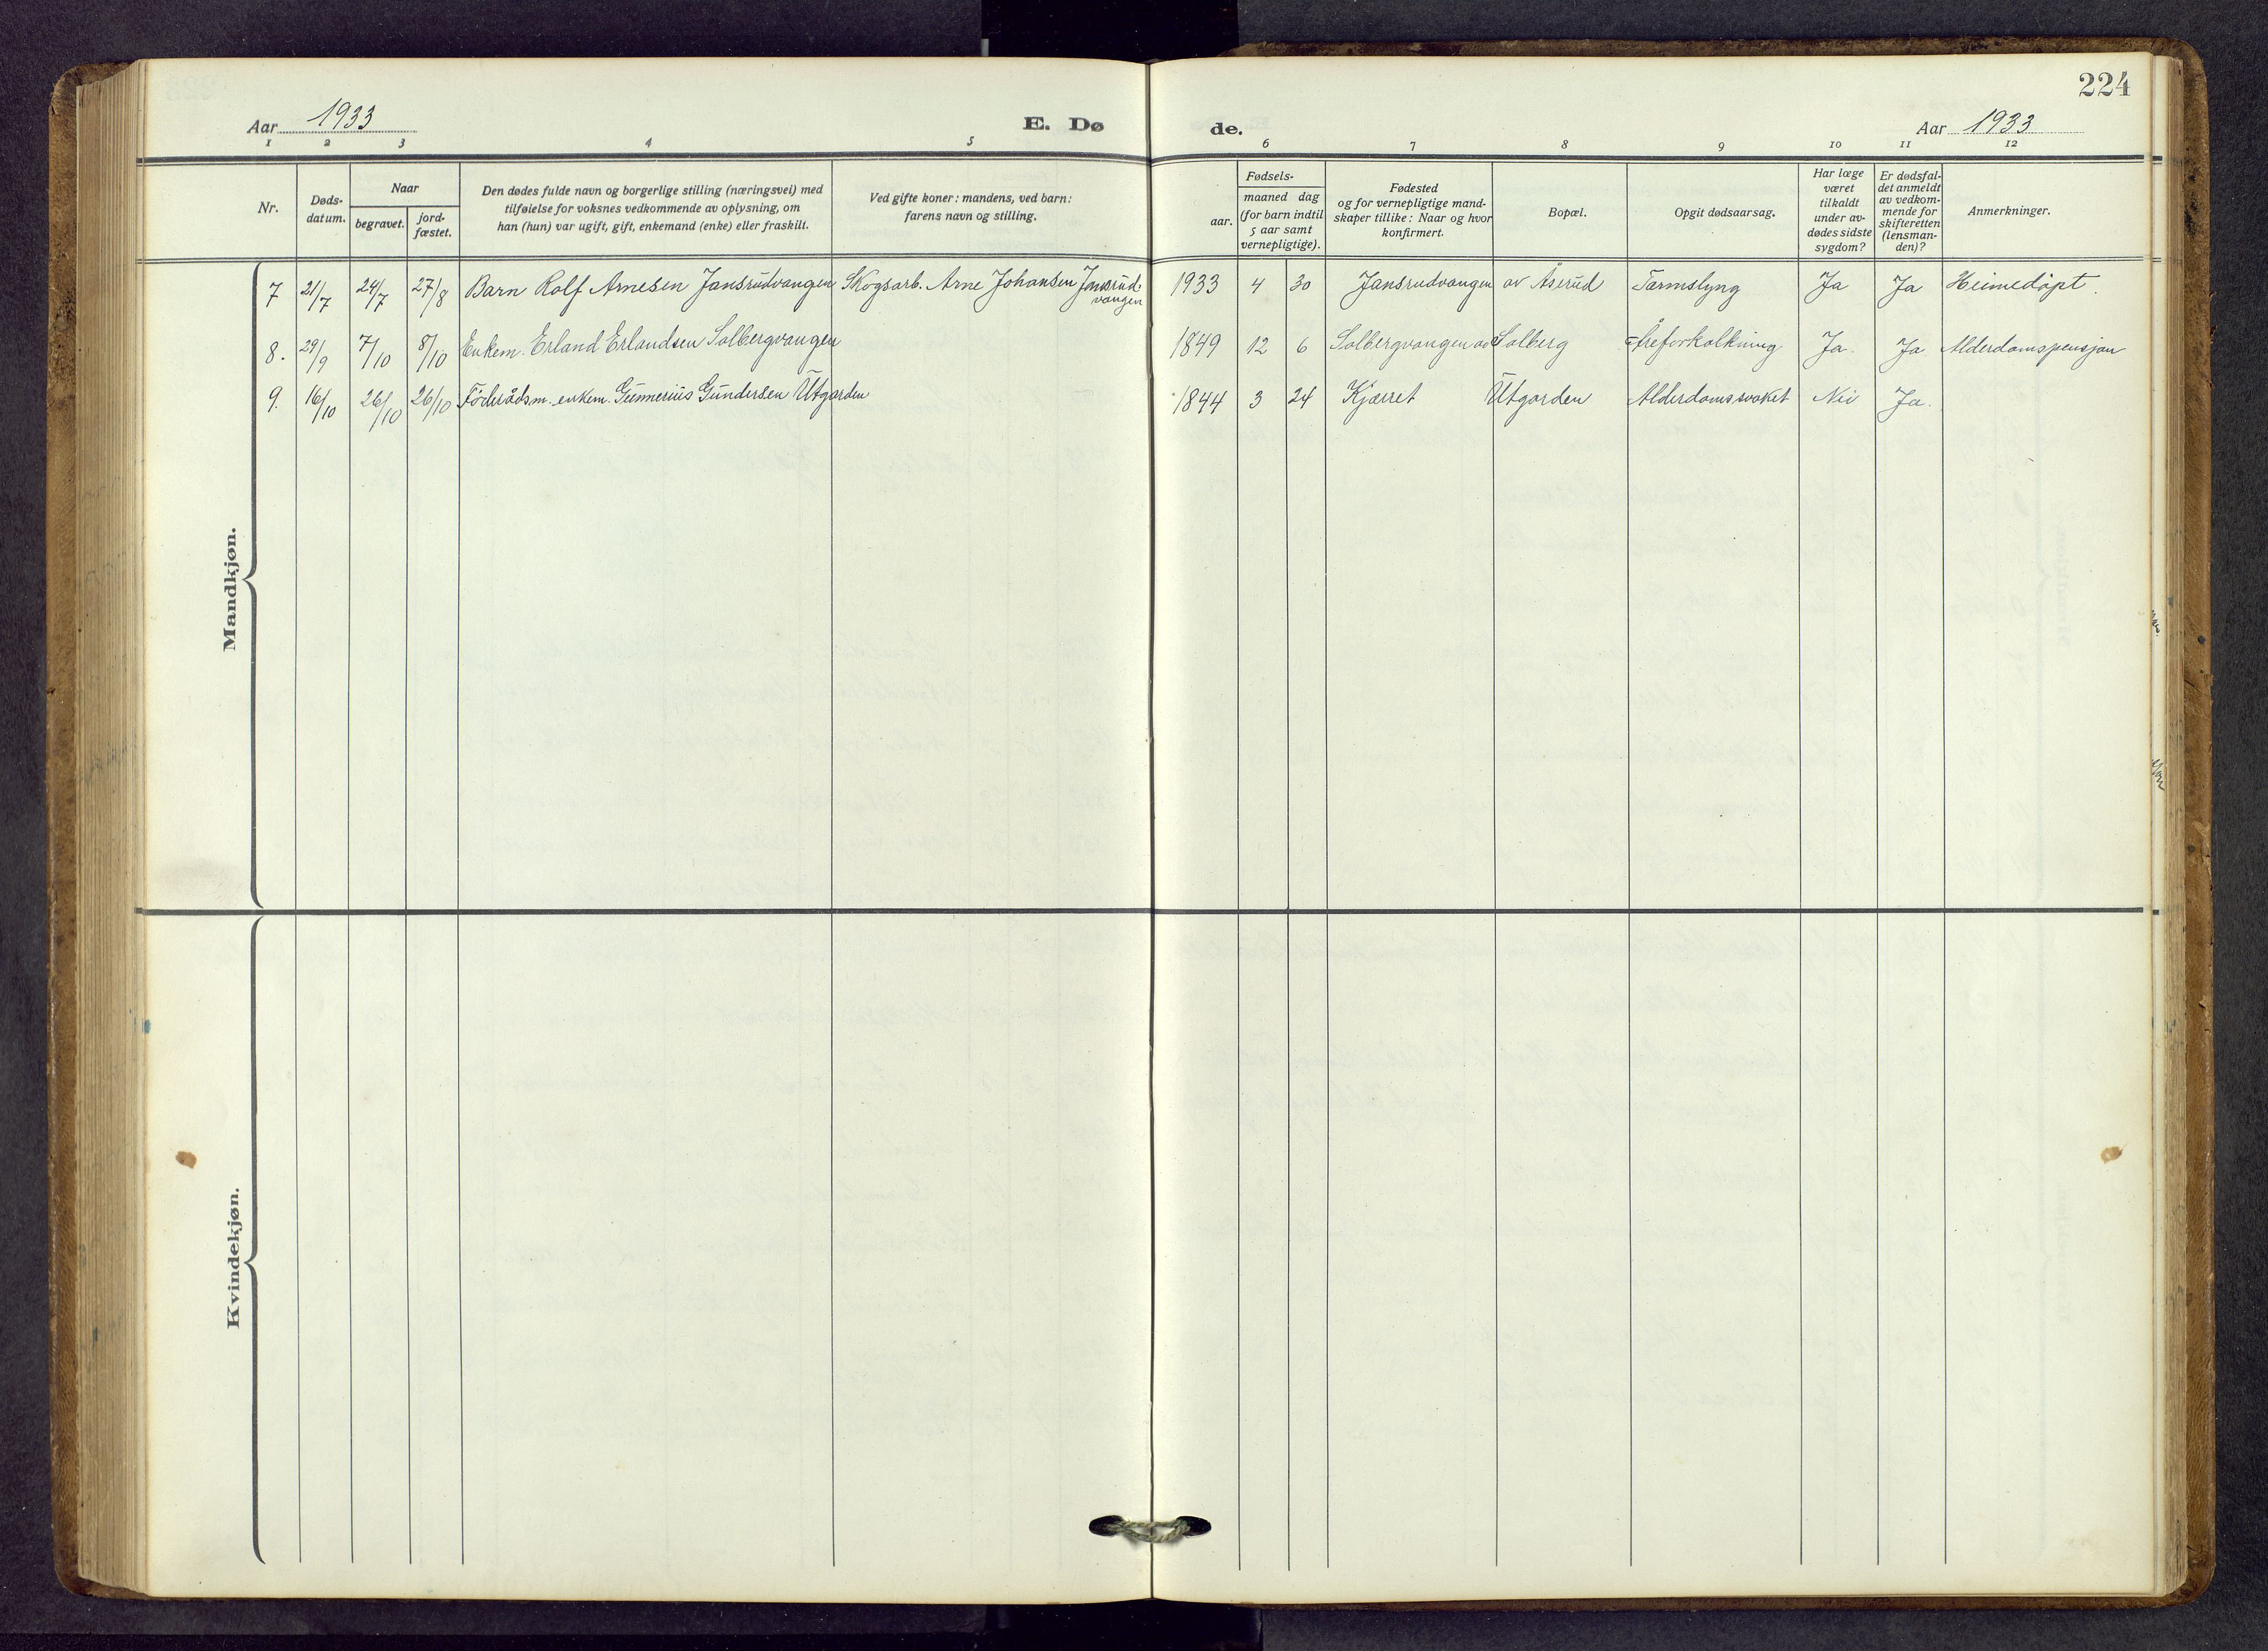 224
Aar 1933
E. Dø
de.
Aar 1933
1 2 3 4 5
6 7 8 9 10 11 12
Nr.
Døds-
datum.
Naar
begravet.
jord-
fæstet.
Den dødes fulde navn og borgerlige stilling (næringsvei) med
tilføielse for voksnes vedkommende av oplysning, om
han (hun) var ugift, gift, enkemand (enke) eller fraskilt.
Ved gifte koner: mandens, ved barn:
farens navn og stilling.
Fødsels-
aar.
maaned dag
(for barn indtil
5 aar samt
vernepligtige).
Fødested
og for vernepligtige mand-
skaper tillike: Naar og hvor
konfirmert.
Bopæl.
Opgit dødsaarsag.
Har læge
været
tilkaldt
under av-
dødes sidste
sygdom?
Er dødsfal-
det anmeldt
av vedkom-
mende for
skifteretten
(lensman-
den)?
Anmerkninger.
Mandkjøn.
7 21/7 24/7 27/8 Barn Rolf Arnesen Jansrudvangen Skogsarb. Arne Johansen Jansrud-
vangen
1933 4 30 Jansrudvangen av Åserud Tarmslyng Ja Ja Heimedöpt.
8. 29/9 7/10 8/10 Enkem. Erland Erlandsen Solbergvangen
1849 12 6 Solbergvangen av Solberg Åreforkalkning Ja. Ja Alderdomspensjon
9. 16/10 26/10 26/10 Föderådsm. enkem. Gunnerius Gundersen Utgarden
1844 3 24 Kjærret Utgarden Alderdomssvaket Nei Ja.
Kvindekjøn.